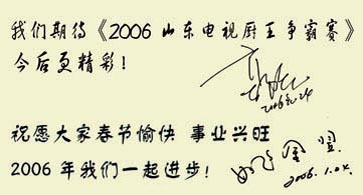 我们期待《2006山东电视厨王争霸赛》
今后更精彩！
祝愿大家春节愉快 事业兴旺
2006年我们一起进步！
2006.1.04.